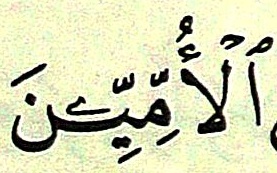 ٱلۡأُمِّيِّـۧنَ